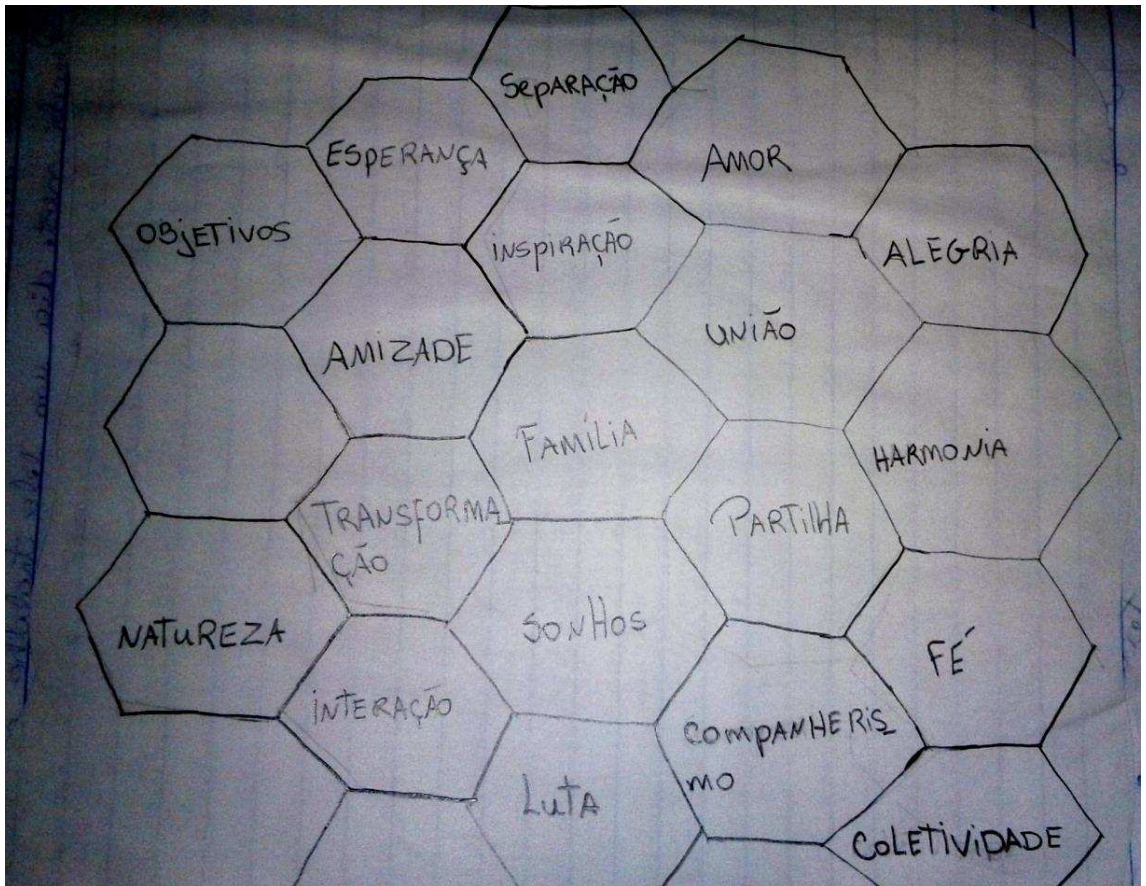 SePARAÇÃO
ESPERANÇA
AMOR
OBjETIVOS
iNSPiRAÇÃO
ALEGRiA
AMIZADE
UNiÃO
FAMÍLiA
HARMONiA
TRANSFORMA
ÇÃO
PARTilHA
NATUREZA
SONHOS
FÉ
iNTERAÇÃO
COmPANHERiS
mO
LUTA
COLETiViDADE